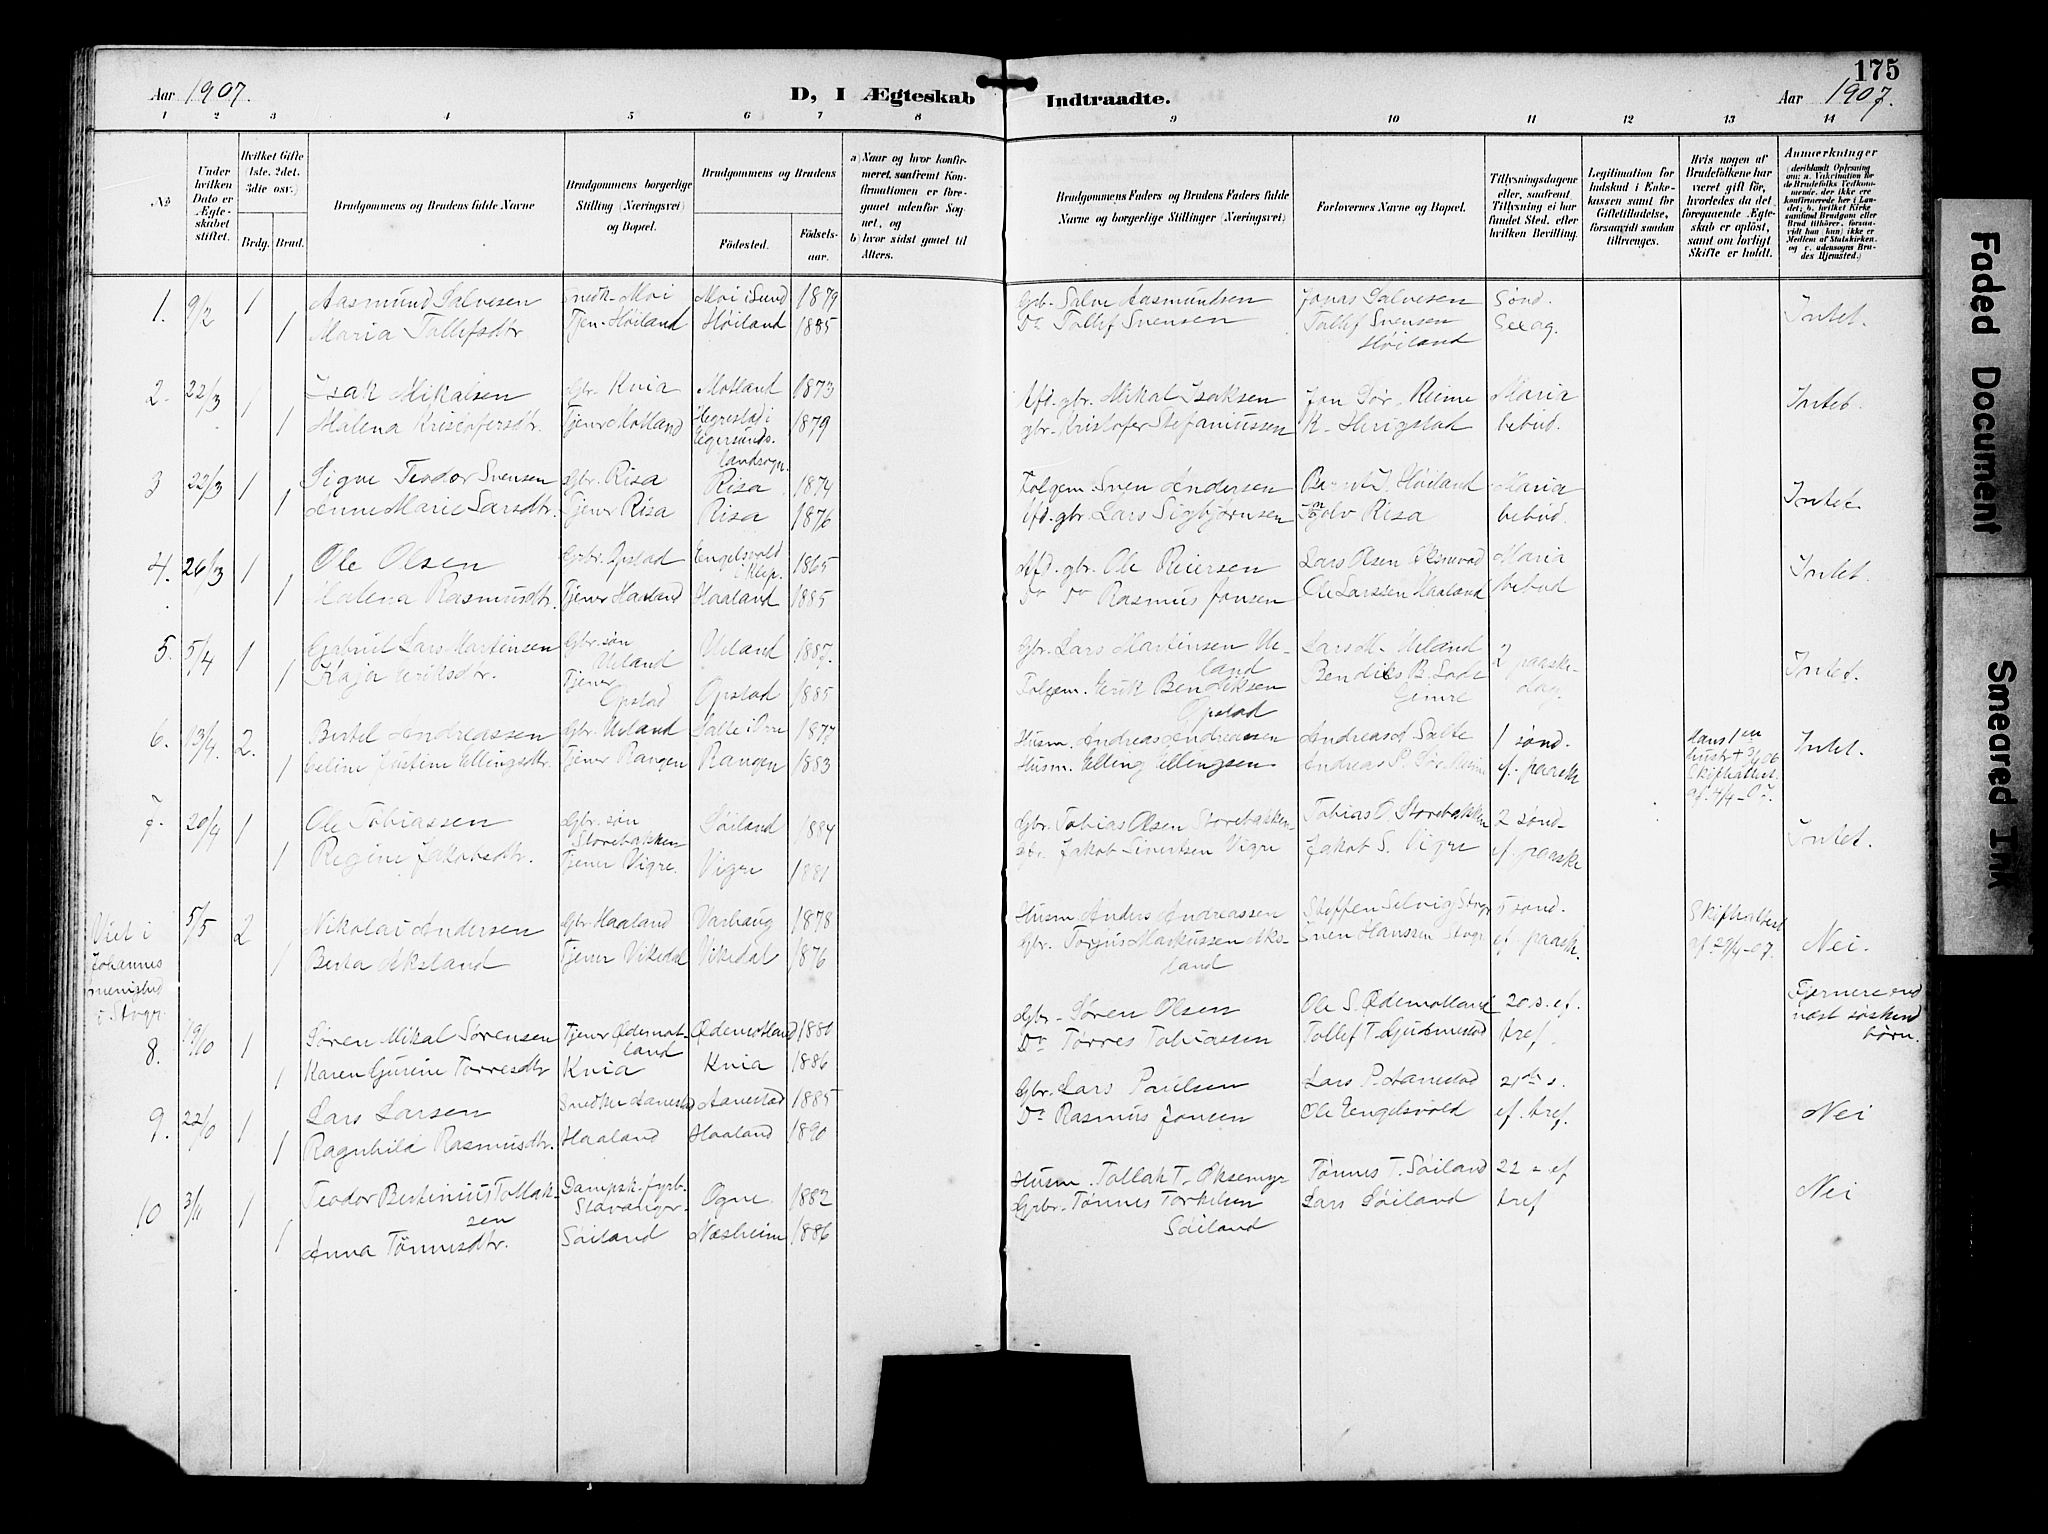 175
Aar 1907.
D, I Ægteskab Indtraadte.
Aar 1907.
1 2 3 4 5 6 7 8 9 10 11 12 13 14
No
Under hvilken Dato er Ægteskabet stiftet.
Hvilket Gifte (1ste, 2det, 3die osv.)
Brdg. Brud.
Brudgommens og Brudens fulde Navne
Brudgommens borgerlige Stilling (Næringsvei) og Bopæl.
Brudgommens og Brudens
Fødested.
Fødselsaar.
a) Naar og hvor konfirmeret, saafremt Konfirmationen er foregaaet udenfor Sognet, og
b) hvor sidst gaaet til Alters.
Brudgommens Faders og Brudens Faders fulde Navne og borgerlige Stillinger (Næringsvei)
Forlovernes Navne og Bopæl.
Tillysningsdagene eller, saafremt Tillysning ei har fundet Sted, efter hvilken Bevilling.
Legitimation for Indskud i Enkekassen samt for Giftetilladelse, forsaavidt saadan tiltrænges.
Hvis nogen af Brudefolkene har været gift før, hvorledes da det foregaaende Ægteskab er opløst, samt om lovligt Skifte er holdt.
Anmerkninger
1. 9/2 1 Aasmund Salvesen Snedk. Moi Moi i Lund 1879 Gbr. Salve Aasmundsen Jonas Salvesen Sønd. Intet.
1 Maria Tollefsdtr Tjen. Høiland Høiland 1885 Do Tollef Svensen Tollef Svensen Sexag.
Høiland
2. 22/3 1 Isak Mikalsen Gbr. Kvia Motland 1873 Afd. gbr. Mikal Isaksen Jon Sør. Reime Maria Intet.
1 Malena Kristofersdtr. Tjener Motland Hegrestad i Egersunds landsogn. 1879 gbr. Kristofer Stefaniussen K. Herigstad bebud.
3 22/3 1 Sigve Teodor Svensen Gbr. Risa Risa 1874 Folgem. Sven Andersen Høiland Maria Intet
1 Anne Marie Larsdtr. Tjener Risa Risa 1876 Afd. gbr. Lars Sigbjørnsen Risa bebud.
4. 26/3 1 Ole Olsen Gbr. Opstad Engelsvold i Klep. 1865 Afd. gbr. Ole Reiersen Lars Olsen Maria Intet.
1 Malena Rasmusdtr. Tjener Haaland Haaland 1885 Do Do Rasmus Jonsen Ole Larssen Haaland bebud
5. 5/4 1 Gabriel Lars Martinsen Gbr. søn Ueland Ueland 1887. Gbr. Lars Martinsen Ueland Lars M. Ueland 2 paaskedag. Intet.
1 Kaja Eriksdtr. Tjener Opstad Opstad 1885 Folgem. Erik Bendiksen Opstad Bendiks B. Lode
6. 13/4. 2. Bertel Andreassen Gbr. Ueland Salte i Orre 1877 Husm. Andreas Andreassen Andreas Salte 1 sønd. Hans 1en hustr. Skifteattest af 4/4-07. Intet.
1 Celine Justine Ellingsdtr. Tjener Rangen Rangen 1883 Husm. Elling Ellingsen Andreas P. Sør. Reime ef. paaske
7. 20/4 1 Ole Tobiassen Gbr. søn Storebakken Søiland 1884 Gbr. Tobias Olsen Storebakken Tobias O. Storebakken 2 sønd. Intet.
1 Regine Jakobsdtr. Tjener Vigre. Vigre 1881 Gbr. Jakob Sivertsen Vigre Jakob S. Vigre ef. paaske
Viet i Johannes menighed i Stvgr.
5/5 2 Nikolai Andersen Gbr. Haaland Varhaug 1878 Husm Anders Andreassen Steffen Selvig Stvgr 5 sønd. Skifteattest af 29/4-07. Nei.
1 Berta Aksland Tjener Vikedal Vikedal 1876 Gbr. Torjus Markussen Aksland Sven Hanssen Stvgr ef. paaske.
8. 19/10 1 Søren Mikal Sørensen Tjener Ødemotland Ødemotland 1881 Gbr. Søren Olsen Ole S. Ødemotland 20. s. ef. Fjernere end næst søskendbørn.
1 Karen Gurine Torresdtr Kvia Kvia 1886 Do Tørres Tobiassen Tollef T. Gudmestad tref.
9. 22/10 1 Lars Larsen Snedker Aanestad Aanestad 1885 Gbr. Lars Paulsen Lars P. Aanestad 21de s. Nei
1 Ragnhild Rasmusdtr. Haaland Haaland 1890 Do Rasmus Jonsen Ole Engelsvold ef. tref.
10 3/11 1 Teodor Bertinius Tollaksen Dampsk. fyrb. Stavanger. Ogne. 1882 Husm. Tollak T. Oksemyr Tønnes T. Søiland 22 - ef Nei
1 Anna Tønnesdtr. Søiland Næsheim 1886 Grbr. Tønnes Torkelsen Søiland Lars Søiland tref
Faded Document
Smeared Ink